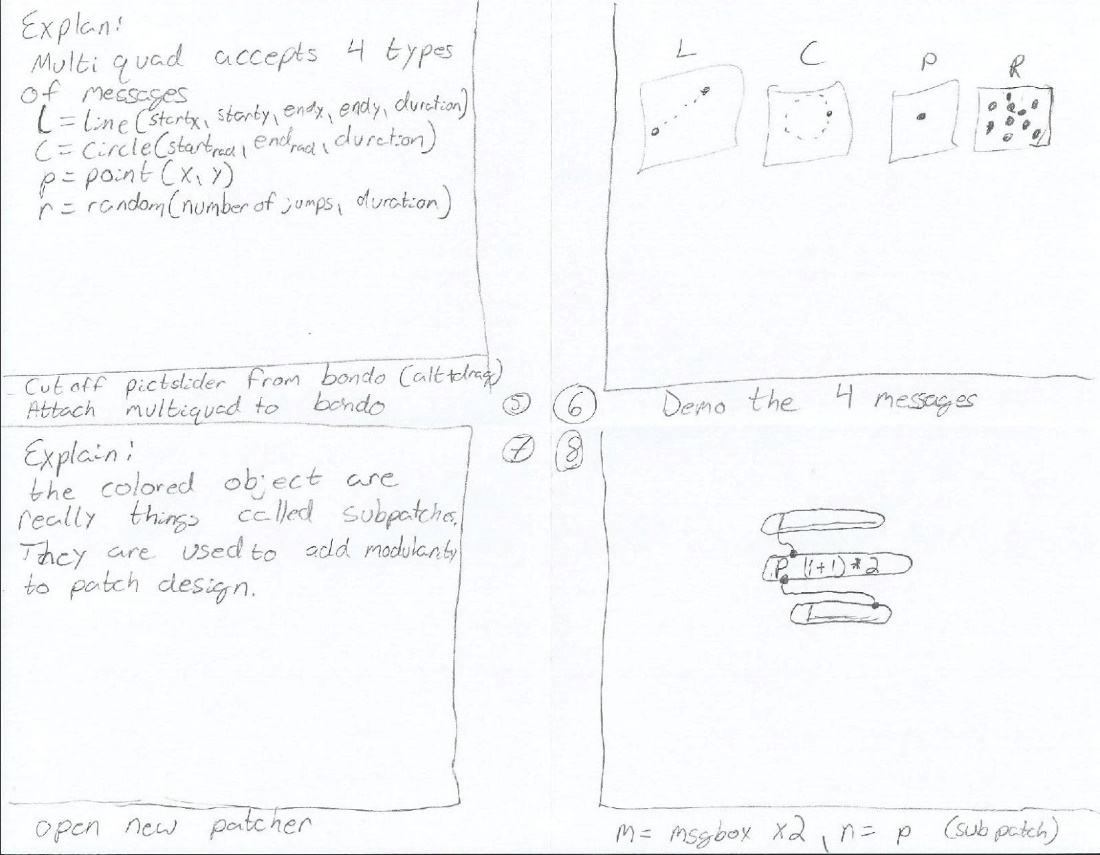 Explan:
Multi quad accepts 4 types
of messages
L = line (startx, starty, endx, endy, duration)
C = circle (startrad, endrad, duration)
p = point (x, y)
r = random (number of jumps, duration)
Cut off pictslider from bondo (alt+drag)
Attach multiquad to bondo
5
L C P R
6
Demo the 4 messages
7
Explain:
the colored object are
really things called subpatches.
They are used to add modularity
to patch design.
open new patcher
8
P (1+1)*2
m = msgbox x2, n = p (subpatch)